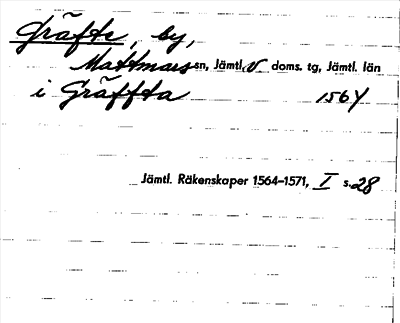 Gräfte, by,
Mattmars sn, Jämtl. v doms. tg, Jämtl. län
i Gräffta 1564
Jämtl. Räkenskaper 1564–1571, I s. 28